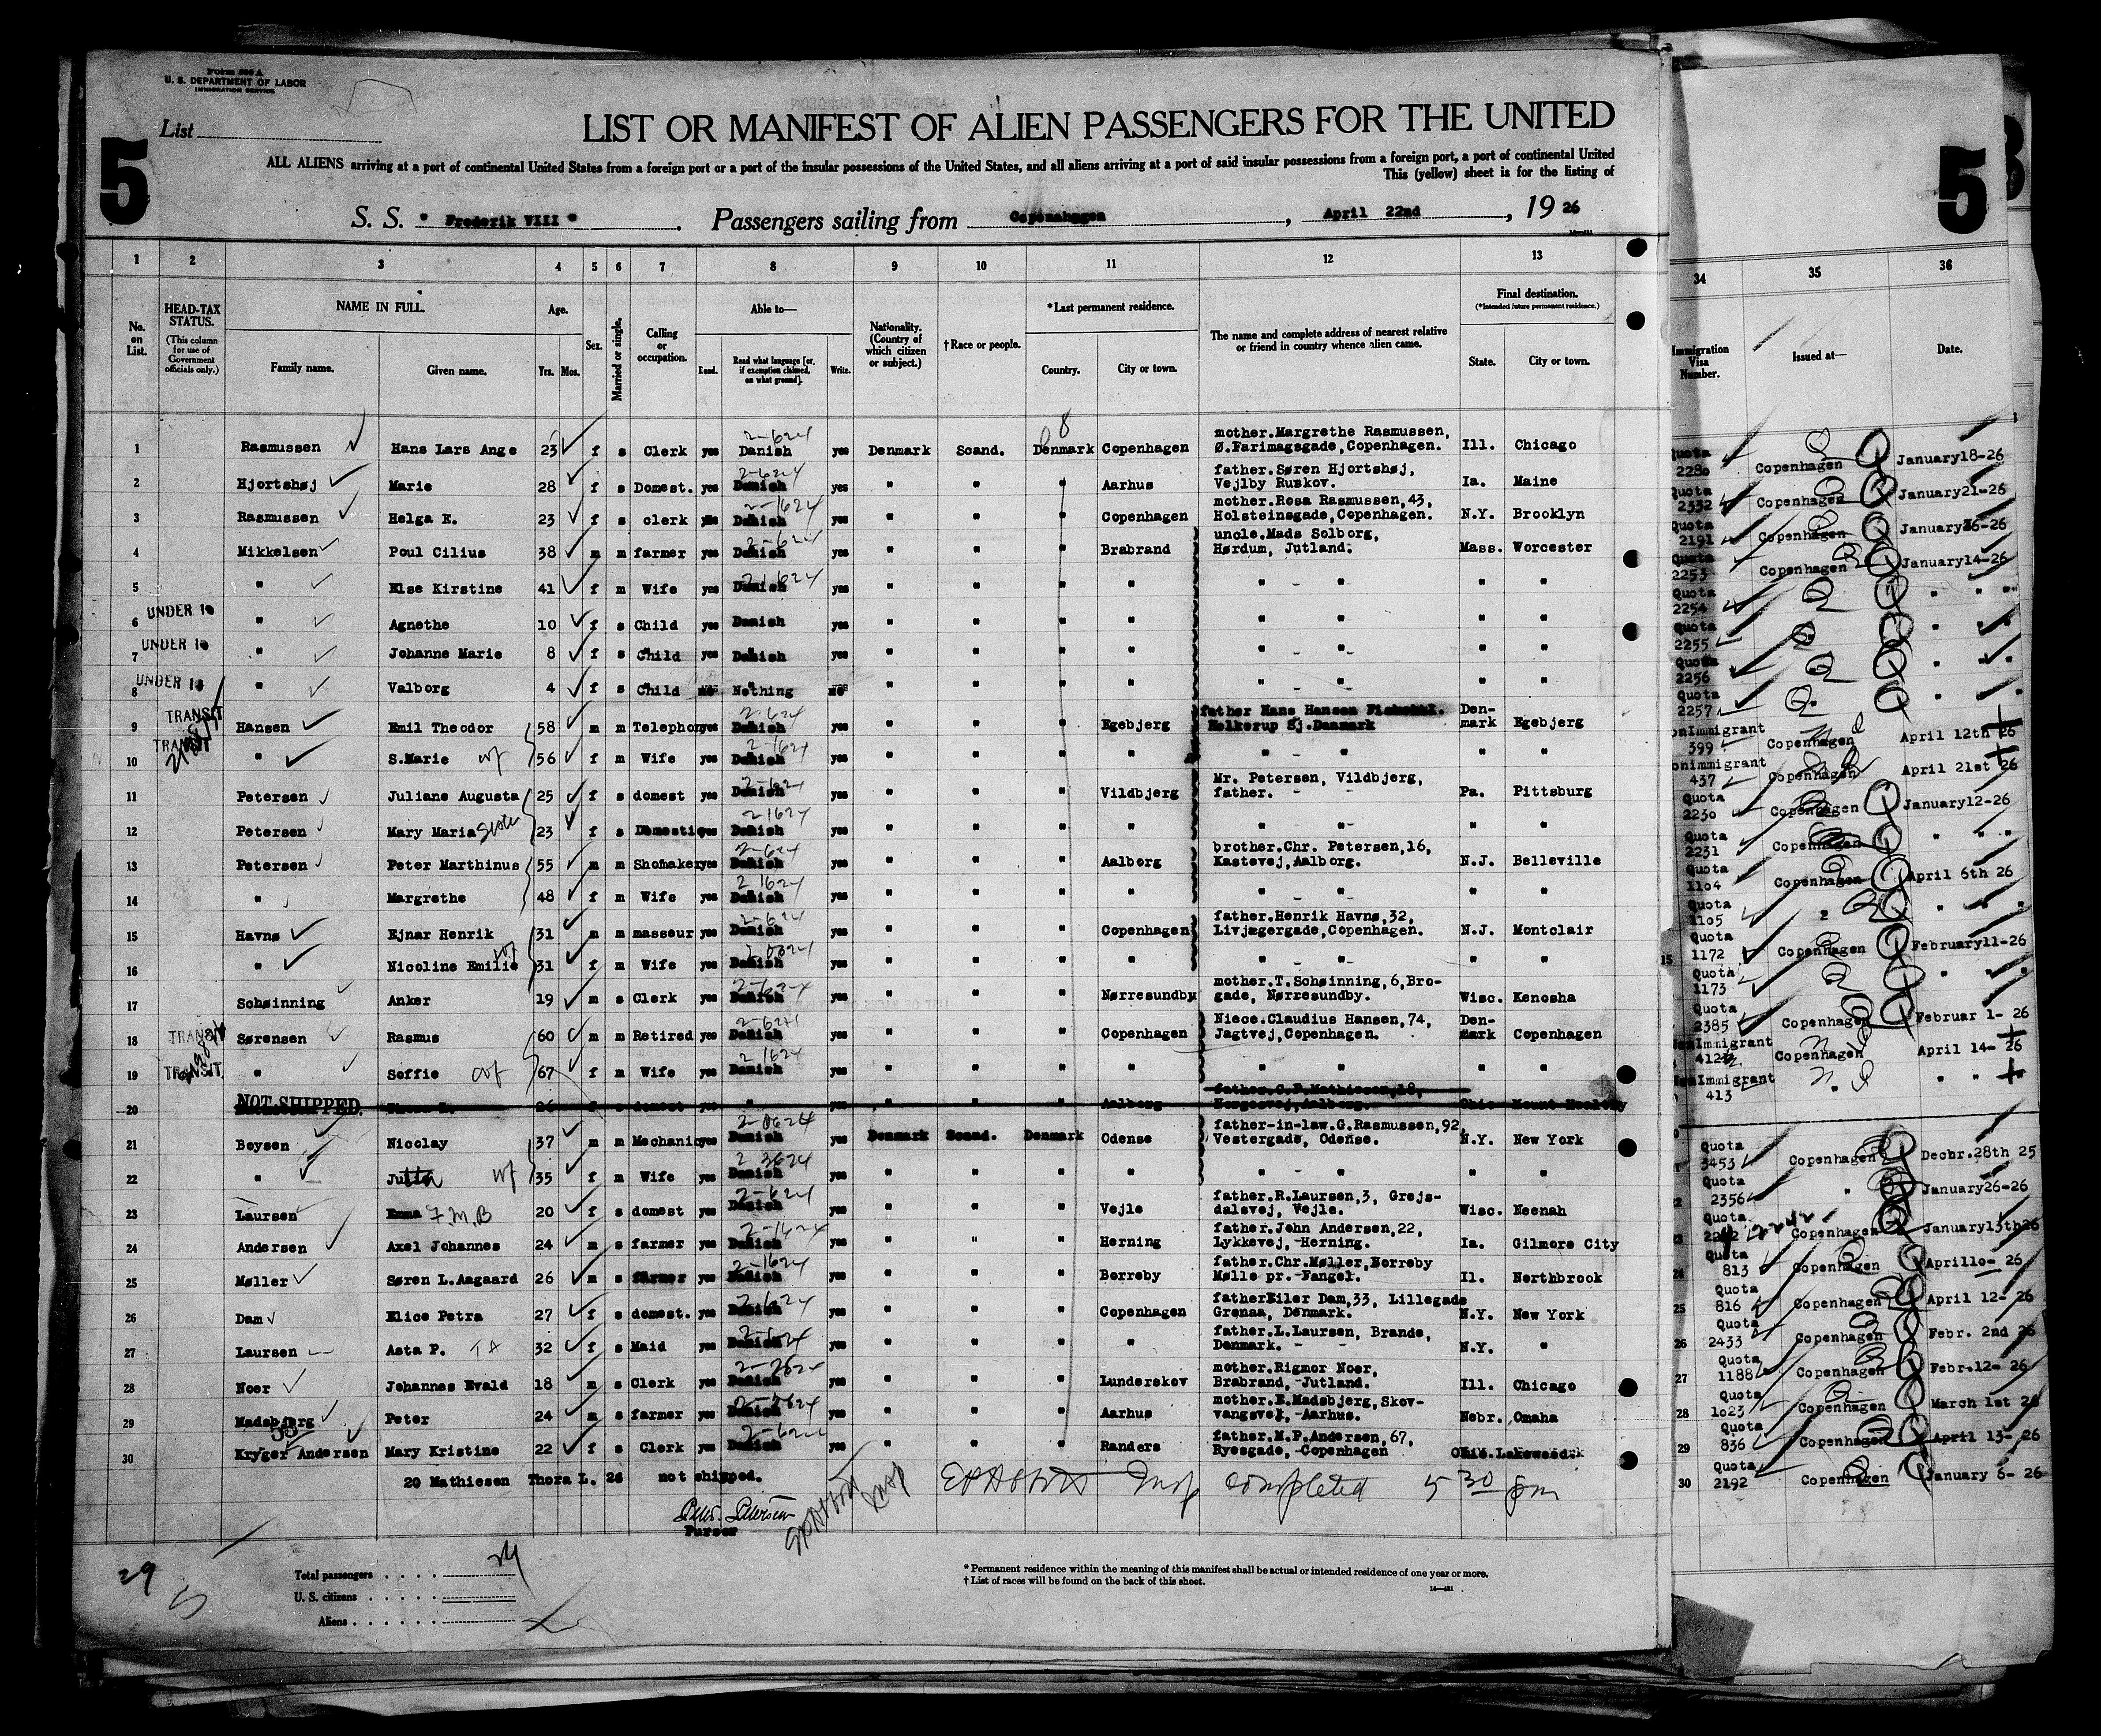 Form 500 A
U. S. DEPARTMENT OF LABOR
IMMIGRATION SERVICE
List
5
LIST OR MANIFEST OF ALIEN PASSENGERS FOR THE UNITED
ALL ALIENS arriving at a port of continental United States from a foreign port or a port of the insular possessions of the United States, and all aliens arriving at a port of said insular possessions from a foreign port, a port of continental United
This (yellow) sheet is for the listing of
S. S. " Frederik VIII " . Passengers sailing from Copenahagen , April 22nd , 19 26
5
1 2 3 4 5 6 7 8 9 10 11 12 13 34 35 36
No. on List.
HEAD-TAX STATUS.
(This column for use of Government officials only.)
NAME IN FULL.
Family name. Given name.
Age.
Yrs. Mos.
Sex.
Married or single.
Calling or occupation.
Able to—
Read. Read what language [or, if exemption claimed, on what ground]. Write.
Nationality. (Country of which citizen or subject.)
†Race or people.
*Last permanent residence.
Country. City or town.
The name and complete address of nearest relative or friend in country whence alien came.
Final destination.
(*Intended future permanent residence.)
State. City or town.
Immigration Visa Number.
Issued at—
Date.
1 Rasmussen Hans Lars Ange 23 f s Clerk yes Danish yes Denmark Scand. Denmark Copenhagen mother.Margrethe Rasmussen, Ø.Farimagsgade,Copenhagen. Ill. Chicago Quota 2280 Copenhagen January18-26
2 Hjortshøj Marie 28 f s Domest. yes Danish yes " " " Aarhus father.Søren Hjortshøj, Vejlby Ruskov. Ia. Maine Quota 2332 Copenhagen January21-26
3 Rasmussen Helga E. 23 f s clerk yes Danish yes " " " Copenhagen mother.Rosa Rasmussen,43, Holsteinsgade,Copenhagen. N.Y. Brooklyn Quota 2191 Copenhagen
4 Mikkelsen Poul Cilius 38 m m farmer yes Danish yes " " " Brabrand uncle.Mads Solborg, Hørdum, Jutland. Mass. Worcester Quota 2253 Copenhagen January14-26
5 " Else Kirstine 41 f m Wife yes Danish yes " " " " " - " " " Quota 2254 " " "
6 UNDER 16 " Agnethe 10 f s Child yes Danish yes " " " " " - " " " Quota 2255 " "
7 UNDER 16 " Johanne Marie 8 f s Child yes Danish yes " " " " " - " " " Quota 2256 " "
8 UNDER 16 " Valborg 4 f s Child no Nothing no " " " " " - " " " Quota 2257 " "
9 TRANSIT Hansen Emil Theodor 58 m m Telephon yes Danish yes " " " Egebjerg father Hans Hansen Holkerup Sj.Denmark Denmark Egebjerg onImmigrant 399 Copenhagen April 12th 26
10 TRANSIT " S.Marie wf 56 f m Wife yes Danish yes " " " " " - " " " onimmigrant 437 Copenhagen April 21st 26
11 Petersen Juliane Augusta 25 f s domest yes Danish yes " " " Vildbjerg Mr. Petersen, Vildbjerg, father. - - Pa. Pittsburg Quota 2230 Copenhagen January12-26
12 Petersen Mary Maria Sister 23 f s Domestic yes Danish yes " " " " " - " " " Quota 2231 Copenhagen " " "
13 Petersen Peter Marthinus 55 m m Shomaker yes Danish yes " " " Aalborg brother.Chr. Petersen,16, Kastevej,Aalborg. N.J. Belleville Quota 1104 Copenhagen April 6th 26
14 " Margrethe 48 f m Wife yes Danish yes " " " " " - " " " Quota 1105 " " "
15 Havnø Ejnar Henrik 31 m m masseur yes Danish yes " " " Copenhagen father.Henrik Havnø,32, Livjægergade,Copenhagen. N.J. Montclair Quota 1172 Copenhagen February11-26
16 " Nicoline Emilie wf 31 f m Wife yes Danish yes " " " " " - " " " Quota 1173 " " "
17 Schøinning Anker 19 m s Clerk yes Danish yes " " " Nørresundby mother.T.Schøinning,6,Brogade, Nørresundby. Wisc. Kenosha Quota 2385 Copenhagen Februar 1- 26
18 TRANSIT Sørensen Rasmus 60 m m Retired yes Danish yes " " " Copenhagen Niece.Claudius Hansen,74, Jagtvej,Copenhagen. Denmark Copenhagen NonImmigrant 412 Copenhagen April 14- 26
19 TRANSIT. " Soffie wf 67 f m Wife yes Danish yes " " " " " - " " " NonImmigrant 413 " "
20 NOT SHIPPED. Thora L. 26 f s domest yes " yes " " " Aalborg father.C.P.Mathiesen,18, Norgesvej,Aalborg. Ohio Mount Healthy
21 Boysen Nicolay 37 m m Mechanic yes Danish yes Denmark Scand. Denmark Odense father-in-law.G.Rasmussen,92, Vestergade, Odense. N.Y. New York Quota 3453 Copenhagen Decbr.28th 25
22 " Jutta wf 35 f m Wife yes Danish yes " " " " " - " " " Quota 2356 " January26-26
23 Laursen Emma F.M.B 20 f s domest yes Danish yes " " " Vejle father.R.Laursen,3, Grejsdalsvej, Vejle. Wisc. Neenah Quota Copenhagen January13th26
24 Andersen Axel Johannes 24 m s farmer yes Danish yes " " " Herning father.John Andersen,22, Lykkevej,-Herning. Ia. Gilmore City Quota 813 Copenhagen April10- 26
25 Møller Søren L.Aagaard 26 m s farmer yes Danish yes " " " Borreby father.Chr.Møller,Borreby Mølle pr.-Fangel. Il. Northbrook Quota 816 Copenhagen April 12- 26
26 Dam Elice Petra 27 f s domest. yes Danish yes " " " Copenhagen fatherEiler Dam,33, Lillegade Grenaa, Denmark. N.Y. New York Quota 2433 Copenhagen Febr. 2nd 26
27 Laursen Asta P. 32 f s Maid yes Danish yes " " " " father.L.Laursen, Brande, Denmark. - - N.Y. " Quota 1188 Copenhagen Febr.12- 26
28 Noer Johannes Evald 18 m s Clerk yes Danish yes " " " Lunderskov mother.Rigmor Noer, Brabrand,-Jutland. Ill. Chicago Quota 1023 Copenhagen March 1st 26
29 Madsbjerg Peter 24 m s farmer yes Danish yes " " " Aarhus mother.E.Madsbjerg,Skovvangsvej,-Aarhus. Nebr. Omaha Quota 836 Copenhagen April 13- 26
30 Kryger Andersen Mary Kristine 22 f s Clerk yes Danish yes " " " Randers father.M.P.Andersen,67, Ryesgade,-Copenhagen Ohio. Quota 2192 Copenhagen January 6- 26
20 Mathiesen Thora L. 26 not shipped.
Insp completed 5 30 pm
Purser
29
5
Total passengers
U. S. citizens
Aliens
* Permanent residence within the meaning of this manifest shall be actual or intended residence of one year or more.
† List of races will be found on the back of this sheet.